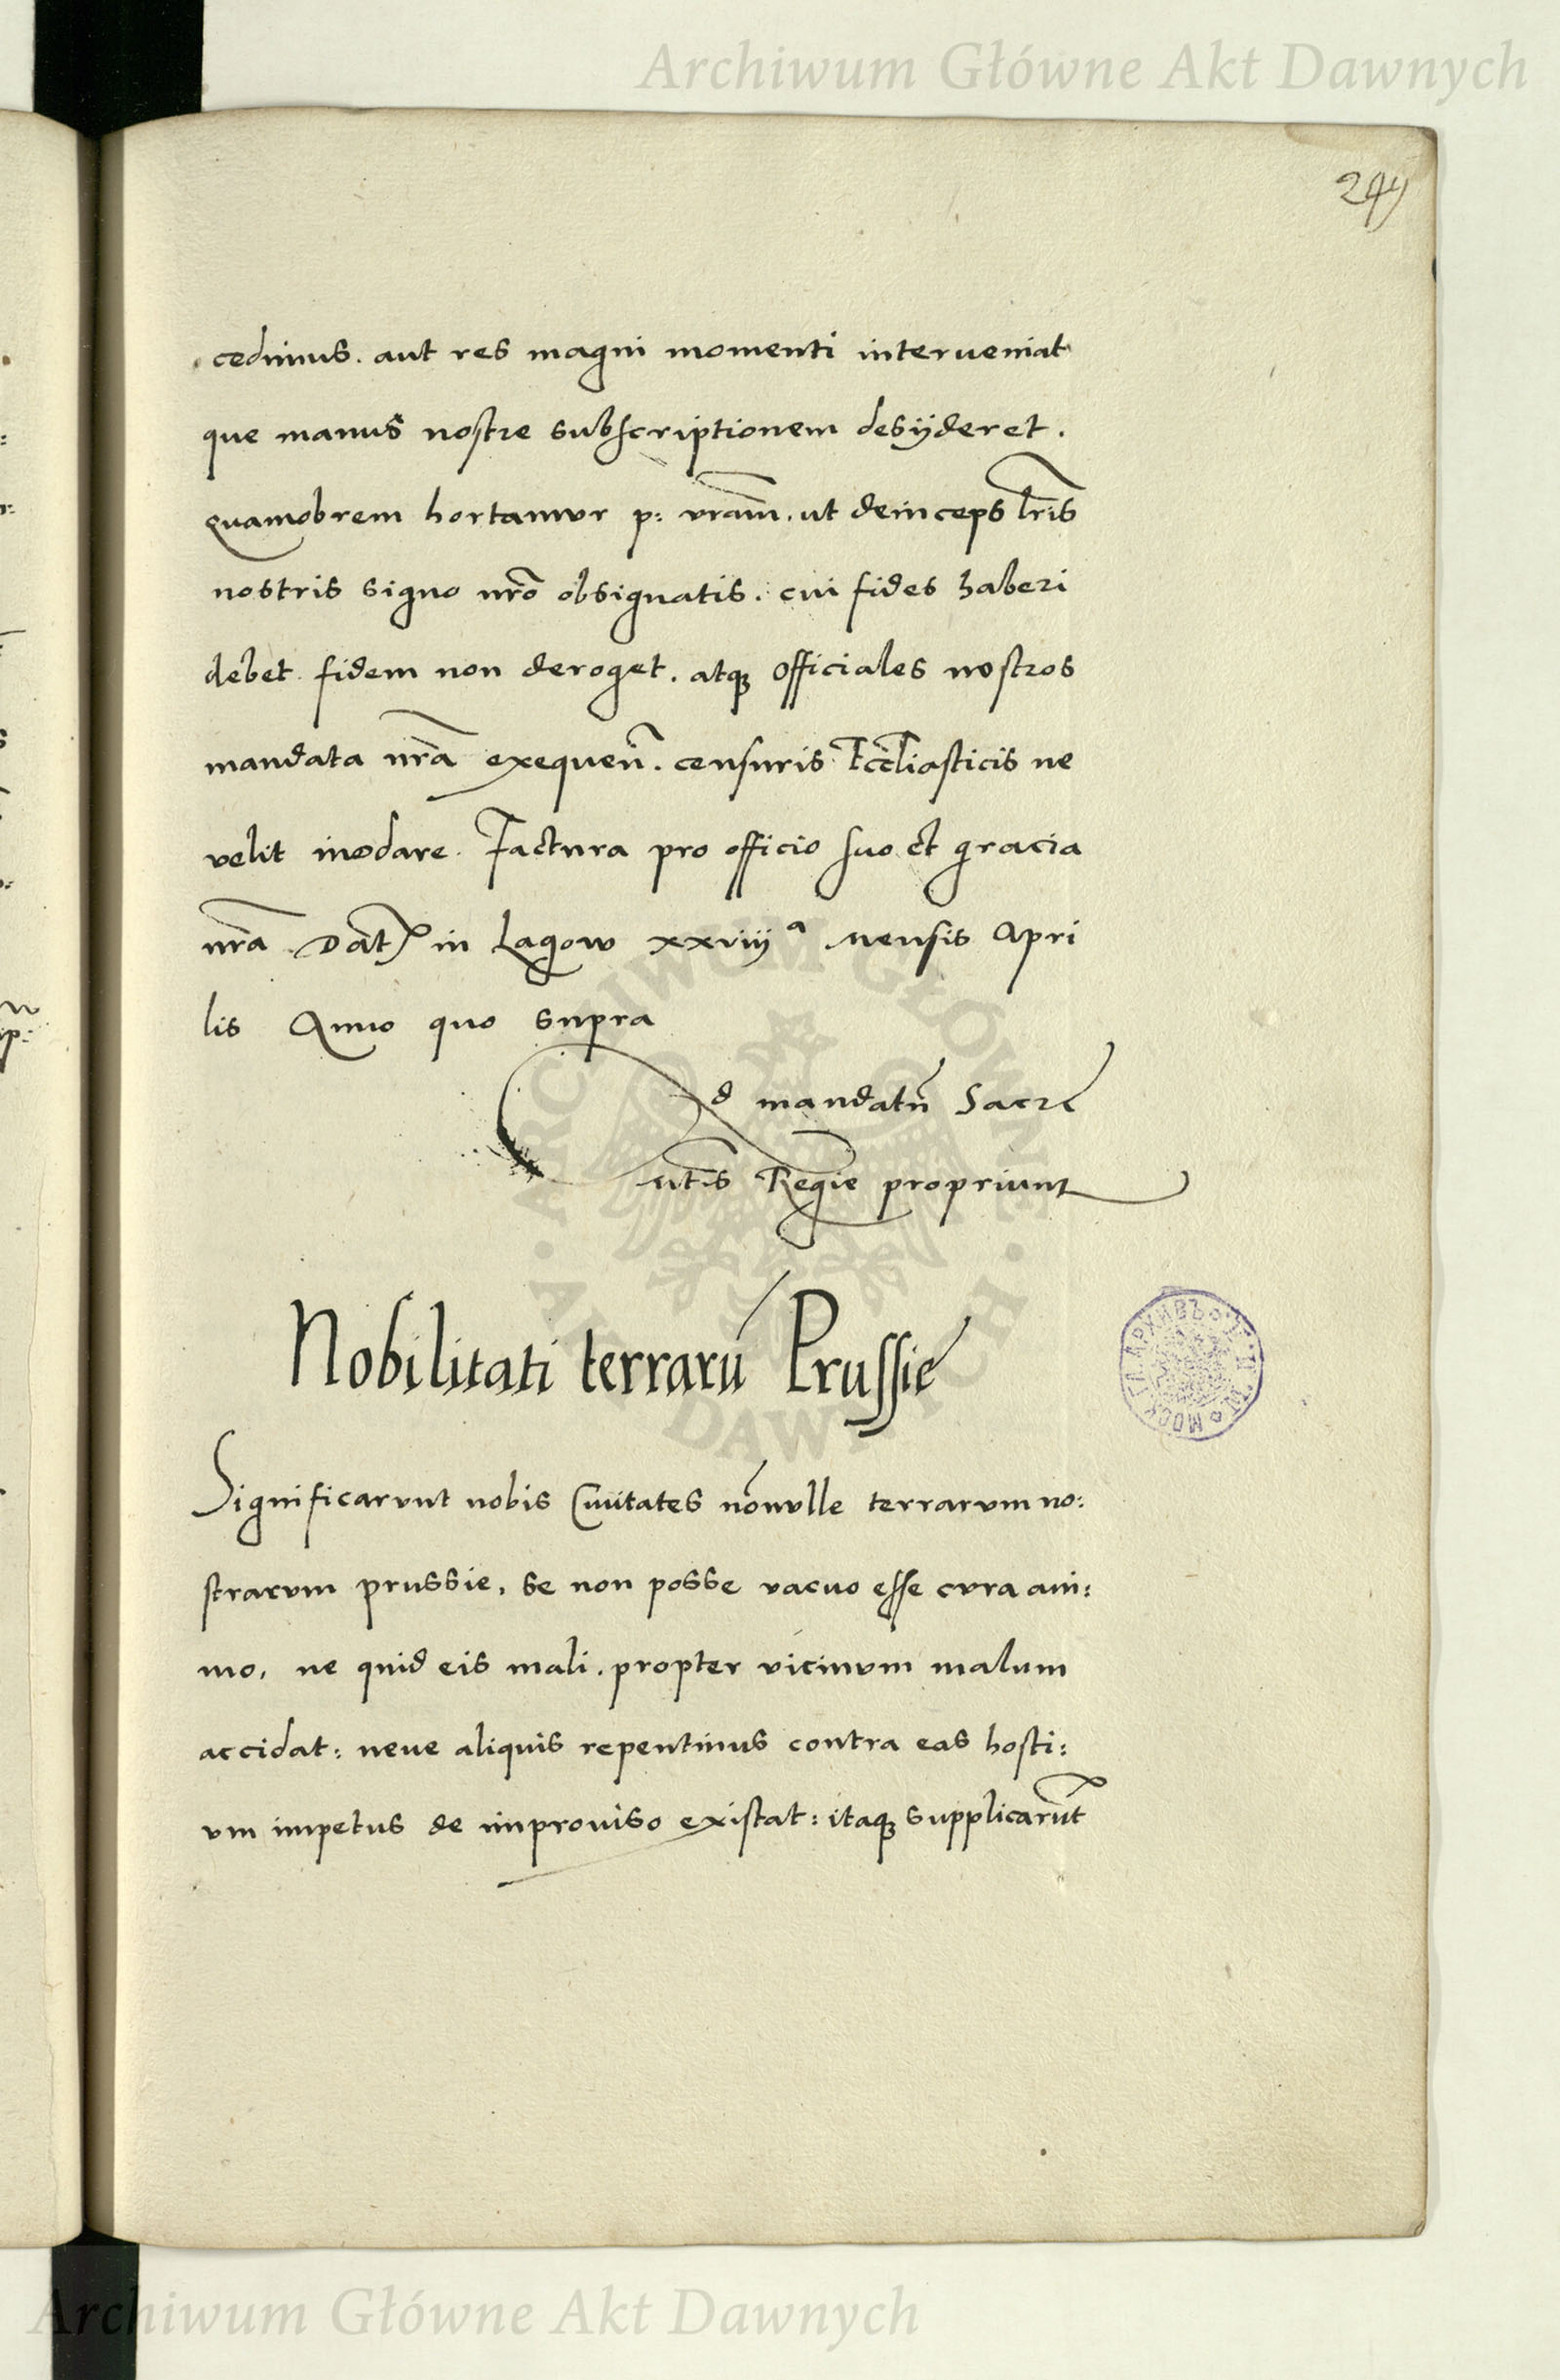 Archiwum Główne Akt Dawnych
cedimus. aut res magni momenti interueniat
que manus nostre subscriptionem desyderet.
quamobrem hortamur p: vram. ut deinceps lris
nostris signo nro obsignatis. cui fides haberi
debet. fidem non deroget. atq3 officiales nostros
mandata nra exequen. censuris Eccliasticis ne
velit inodare. Factura pro officio suo et gracia
nra Dat in Lagow xxviij a mensis Apri
lis Anno quo supra
Ad mandatu Sacre
Mtis Regie proprium
Nobilitati terraru Prussie
Significarunt nobis Ciuitates nonulle terrarum no:
strarum prussie, se non posse vacuo esse cura ani:
mo, ne quid eis mali. propter vicinum malum
accidat: neue aliquis repentinus contra eas hosti:
um impetus de improuiso existat: itaq3 supplicarut
Archiwum Główne Akt Dawnych